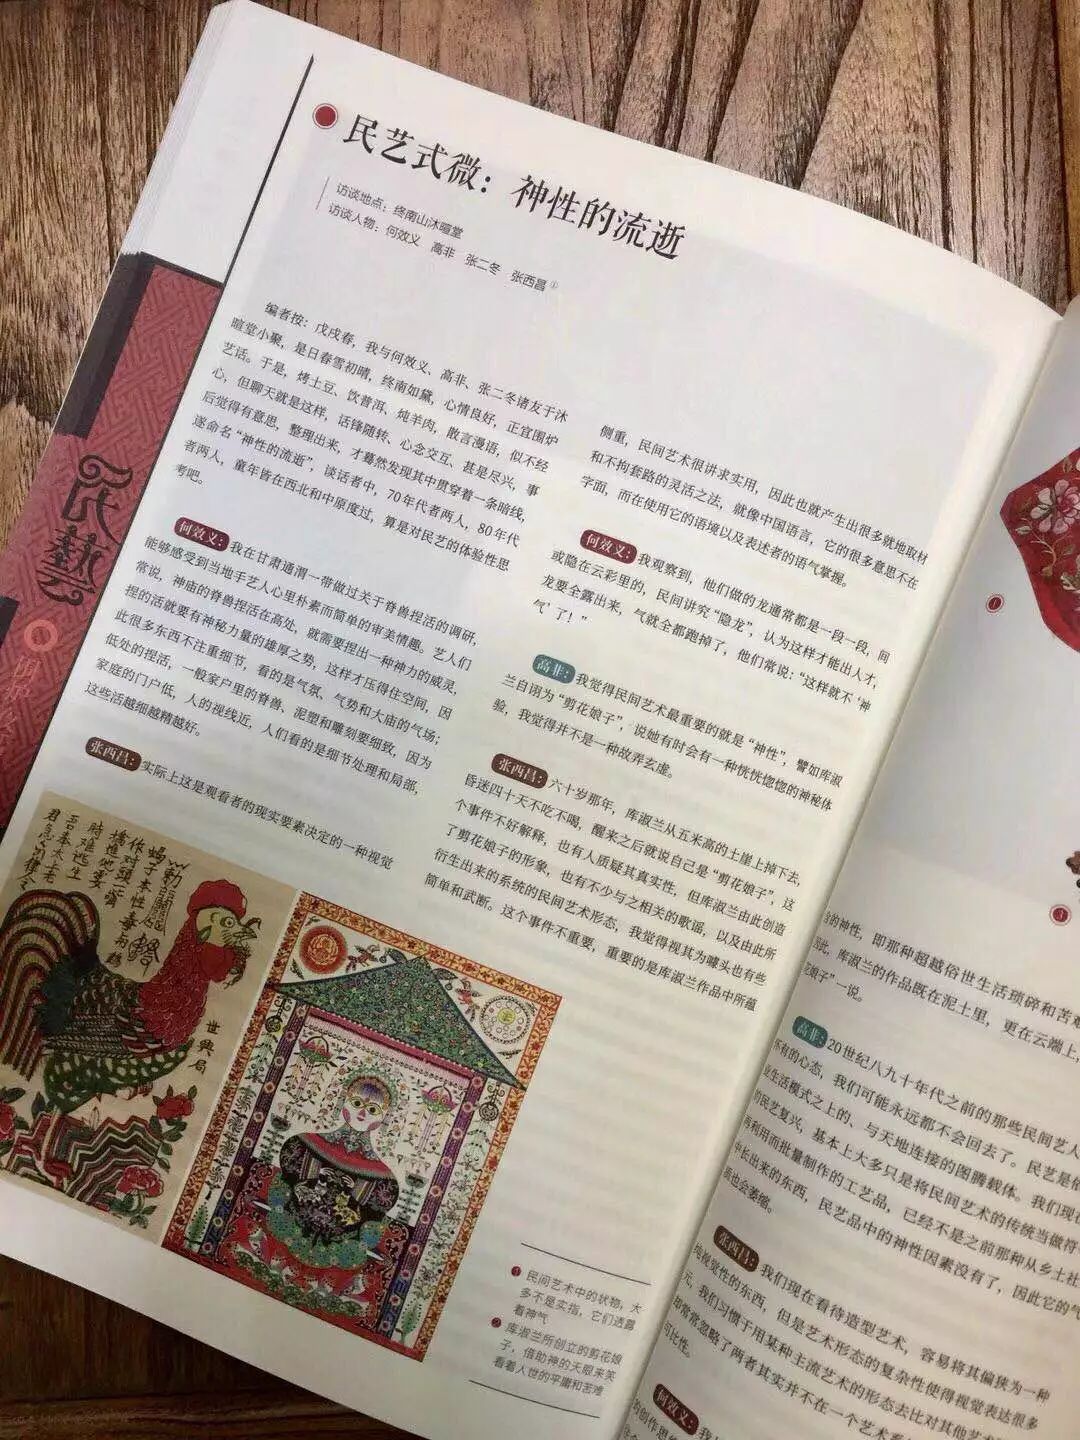 民艺式微：神性的流逝
访谈地点：终南山沐暄堂
访谈人物：何效义 高非 张二冬 张西昌①
编者按：戊戌春，我与何效义、高非、张二冬诸友于沐
暄堂小聚，是日春雪初晴，终南如黛，心情良好，正宜围炉
艺话。于是，烤土豆、饮普洱、炖羊肉，散言漫语，似不经
心，但聊天就是这样，话锋随转、心念交互、甚是尽兴，事
后觉得有意思，整理出来，才蓦然发现其中贯穿着一条暗线，
遂命名“神性的流逝”，谈话者中，70年代者两人，80年代
者两人，童年皆在西北和中原度过，算是对民艺的体验性思
考吧。
何效义：我在甘肃通渭一带做过关于脊兽捏活的调研，
能够感受到当地手艺人心里朴素而简单的审美情趣。艺人们
常说，神庙的脊兽捏活在高处，就需要捏出一种神力的威灵，
捏的活就要有神秘力量的雄厚之势，这样才压得住空间，因
此很多东西不注重细节，看的是气氛、气势和大庙的气场；
低处的捏活，一般家户里的脊兽、泥塑和雕刻要细致，因为
家庭的门户低，人的视线近，人们看的是细节处理和局部，
这些活越细越精越好。
张西昌：实际上这是观看者的现实要素决定的一种视觉
侧重，民间艺术很讲求实用，因此也就产生出很多就地取材
和不拘套路的灵活之法，就像中国语言，它的很多意思不在
字面，而在使用它的语境以及表述者的语气掌握。
何效义：我观察到，他们做的龙通常都是一段一段，间
或隐在云彩里的，民间讲究“隐龙”，认为这样才能出人才，
龙要全露出来，气就全都跑掉了，他们常说：“这样就不‘神
气’了！”
高非：我觉得民间艺术最重要的就是“神性”，譬如库淑
兰自诩为“剪花娘子”，说她有时会有一种恍恍惚惚的神秘体
验，我觉得并不是一种故弄玄虚。
张西昌：六十岁那年，库淑兰从五米高的土崖上掉下去，
昏迷四十天不吃不喝，醒来之后就说自己是“剪花娘子”，这
个事件不好解释，也有人质疑其真实性，但库淑兰由此创造
了剪花娘子的形象，也有不少与之相关的歌谣，以及由此所
衍生出来的系统的民间艺术形态，我觉得视其为噱头也有些
简单和武断。这个事件不重要，重要的是库淑兰作品中所蕴
❶ 民间艺术中的状物，大
多不是实指，它们透露
着神气
❷ 库淑兰所创立的剪花娘
子，借助神的天眼来笑
看着人世的平庸和苦难
民藝
世興局
的神性，即那种超越俗世生活琐碎和苦难
因此，库淑兰的作品既在泥土里，更在云端上，
花娘子”一说。
高非：20世纪八九十年代之前的那些民间艺人
怀有的心态，我们可能永远都不会回去了。民艺是他
业生活模式之上的、与天地连接的图腾载体。我们现在
的民艺复兴，基本上大多只是将民间艺术的传统当做符
利用而批量制作的工艺品，已经不是之前那种从乡土社
中长出来的东西，民艺品中的神性因素没有了，因此它的气
质也会萎缩。
张西昌：我们现在看待造型艺术，容易将其偏狭为一种
纯视觉性的东西，但是艺术形态的复杂性使得视觉表达很多
元，我们习惯于用某种主流艺术的形态去比对其他艺术
却常常忽略了两者其实并不在一个艺术系
可比性。
何效义：我
的创作思维